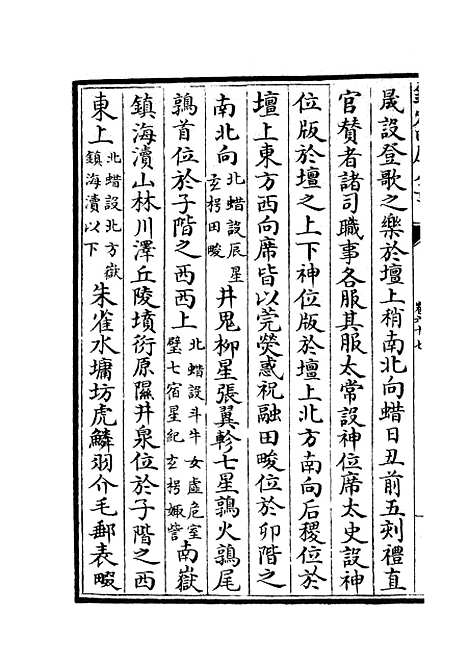 晟設登歌之樂於壇上稍南北向蜡日丑前五刻禮直
官賛者諸司職事各服其服太常設神位席太史設神
位版於壇之上下神位版於壇上北方南向后稷位於
壇上東方西向席皆以莞熒惑祝融田畯位於卯階之
南北向北蜡設辰星玄枵田畯井鬼柳星張翼軫七星鶉火鶉尾
鶉首位於子階之西西上北蜡設斗牛女虛危室壁七宿星紀玄枵娵訾南嶽
鎮海瀆山林川澤丘陵墳衍原隰井泉位於子階之西
東上北蜡設北方嶽鎮海瀆以下朱雀水墉坊虎鱗羽介毛郵表畷